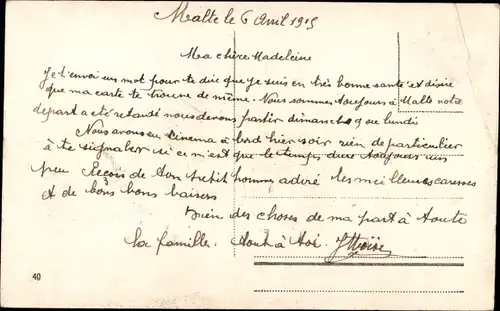 Malte le 6 Avril 1915
Ma chère Madeleine
Je t'envoi un mot pour te dire que je suis en très bonne santé et désire
que ma carte te trouve de même. Nous sommes toujours à Malte notre
depart a été retardé nous devons partir dimanche 9 ou lundi
Nous avons eu cinema à bord hier soir rien de particulier
à te signaler si ce n'est que le temps dure toujours un
peu Reçois de ton petit homme adoré les meilleures caresses
et de bons bons baisers
Bien des choses de ma part à toute
la famille. tout à toi.
40